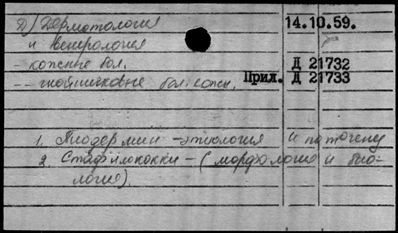 Д) Дерматология 14.10.59.
и венерология
- кожные бол. Д 21732
-- гнойничковые бол. кожи. Прил. Д 21733
1. Пиодермии - этиология и патогенез
2. Стафилококки - (морфология и био-
логия).